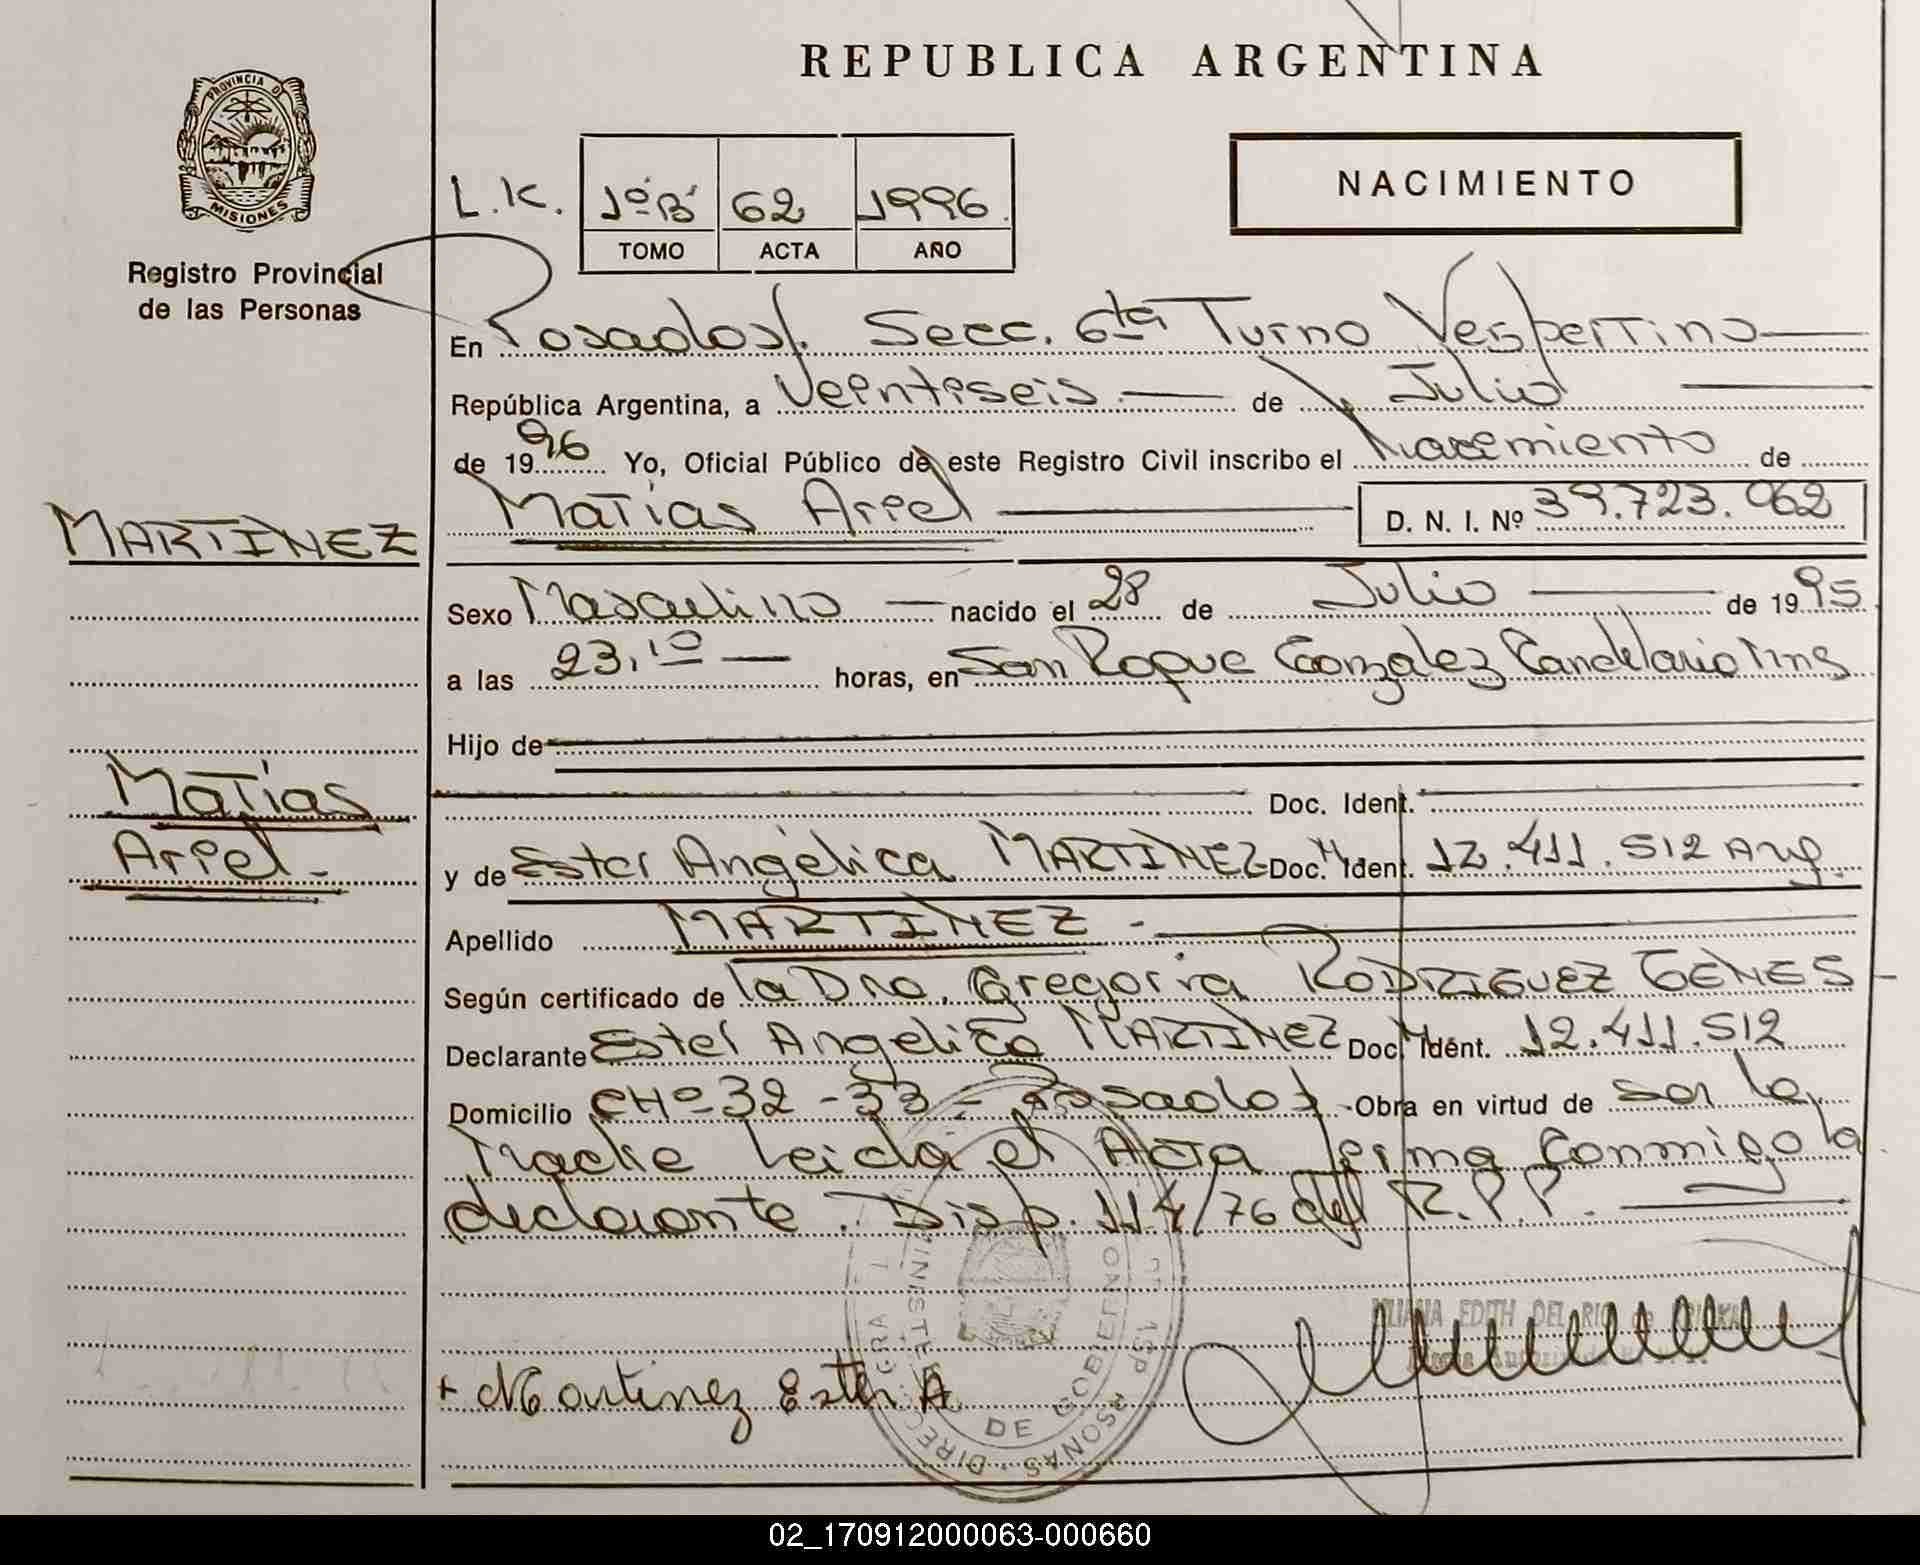 REPUBLICA ARGENTINA
PROVINCIA D
MISIONES
Registro Provincial
de las Personas
L.K. 1º"B" 62 1996.
TOMO ACTA AÑO
NACIMIENTO
En Posadas. Secc. 6ta Turno Vespertino
República Argentina, a Veintiseis de Julio
de 1996 Yo, Oficial Público de este Registro Civil inscribo el Nacimiento de
MARTINEZ
Matías Ariel D. N. I. Nº 39.723.062
Sexo Masculino nacido el 28 de Julio de 1995
a las 23,10 horas, en San Roque Gonzalez Candelaria Mns
Hijo de
Matías
Doc. Ident.
Ariel.-
y de Ester Angélica MARTINEZ Doc. Ident. 12.411.512 Arg.
Apellido MARTINEZ -
Según certificado de la Dra. Gregoria RODRIGUEZ GENES -
Declarante Ester Angelica MARTINEZ Doc. Idént. 12.411.512
Domicilio CHº 32 - 33 - Posadas - Obra en virtud de ser la
Madre Leida el Acta firma conmigo la
declarante. Disp. 114/76 del R.P.P.
EDITH DEL RIO de
+ Martinez Ester A
MINISTERIO DE GOBIERNO
02_170912000063-000660